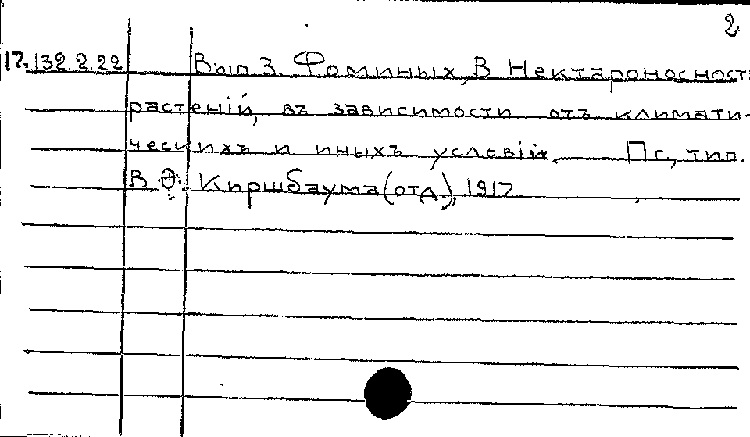 2
17.132.2.22 Вып 3. Фоминых, В Нектароносность
растеній, въ зависимости отъ климати-
ческихъ и иныхъ условій. Пг, тип.
В. Ф. Киршбаума (отд.), 1917